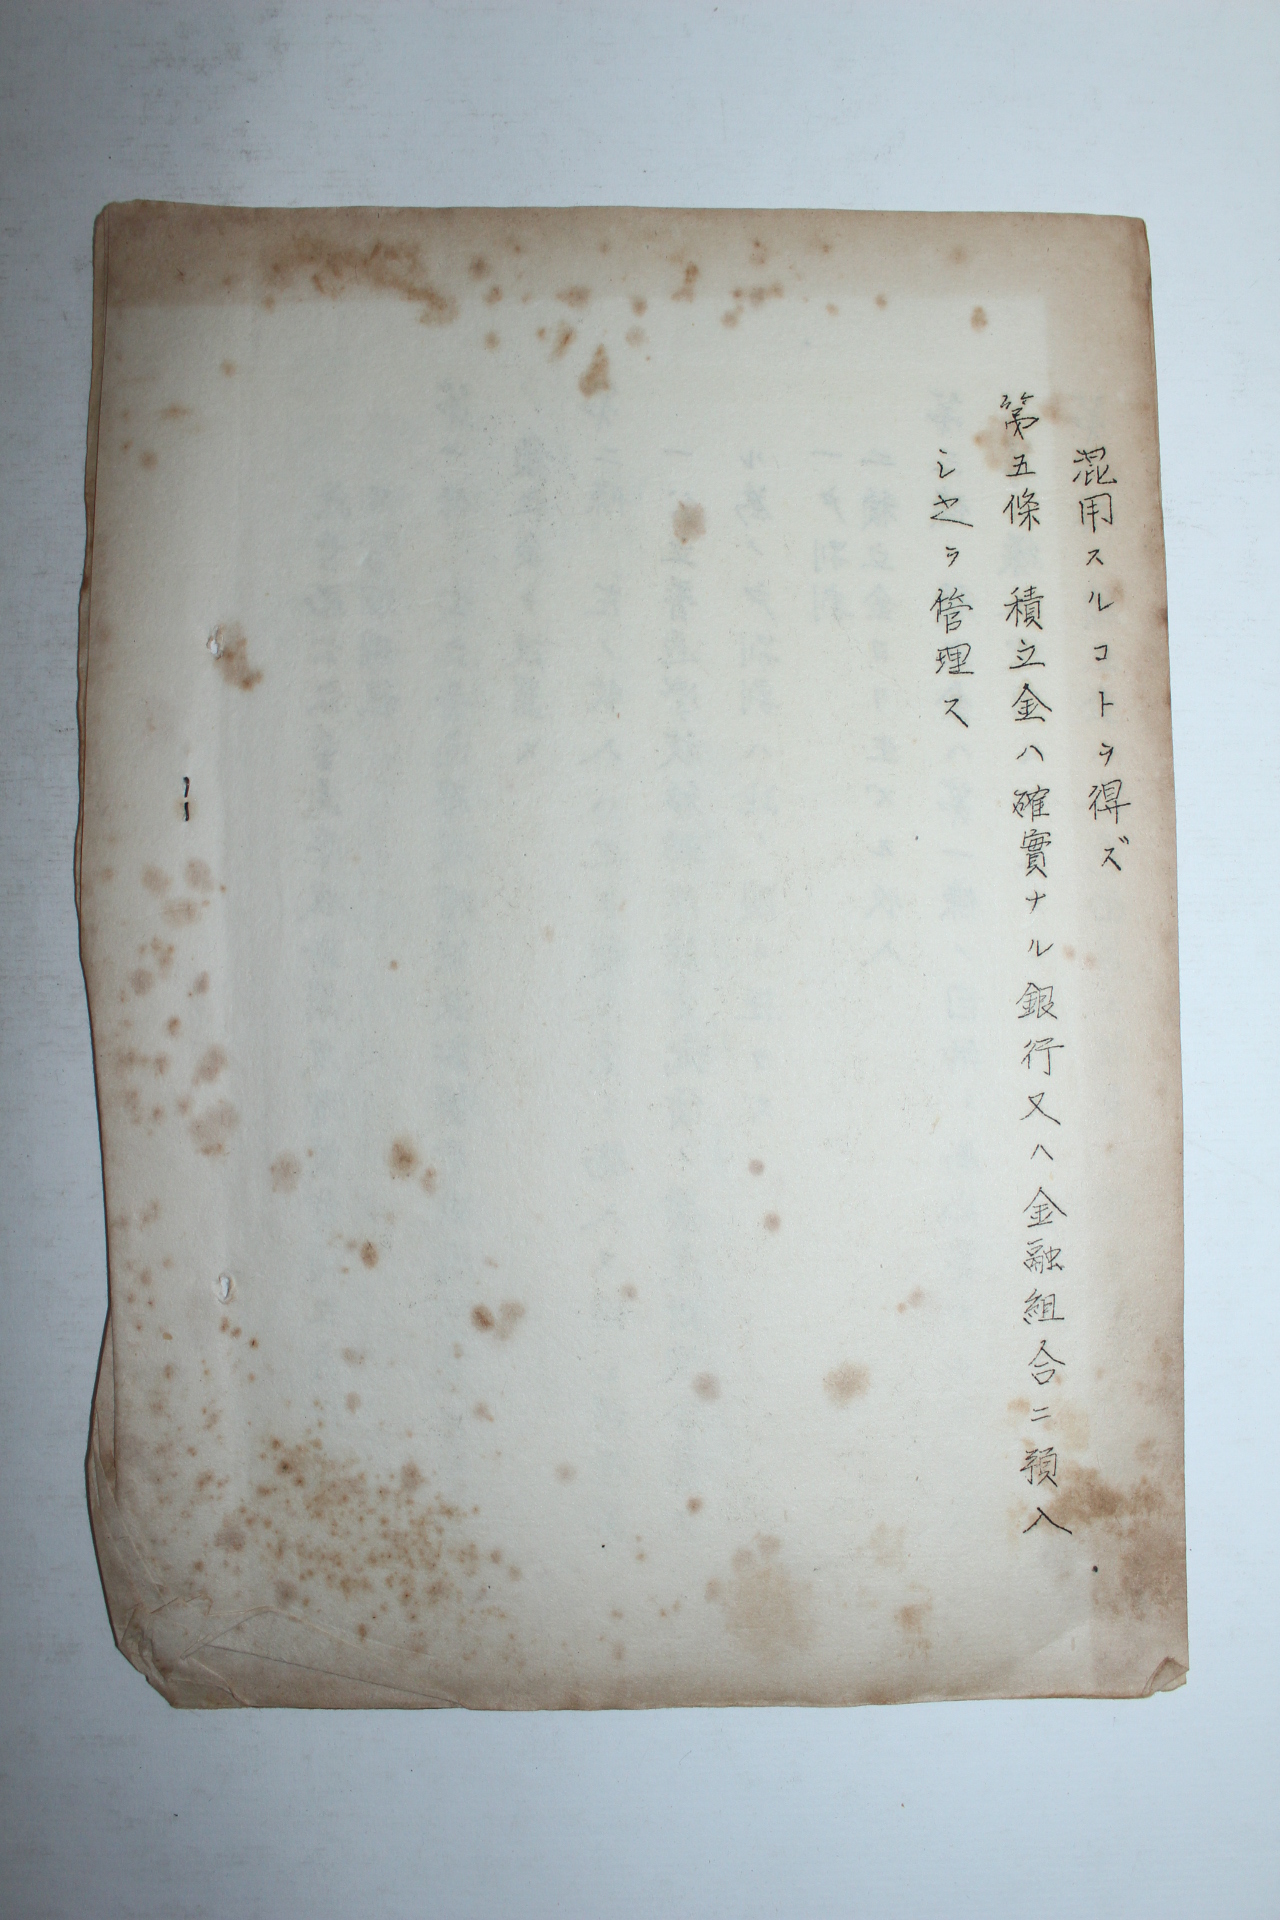 混用スルコトヲ得ズ
第五條 積立金ハ確實ナル銀行又ハ金融組合ニ預入
シ之ヲ管理ス